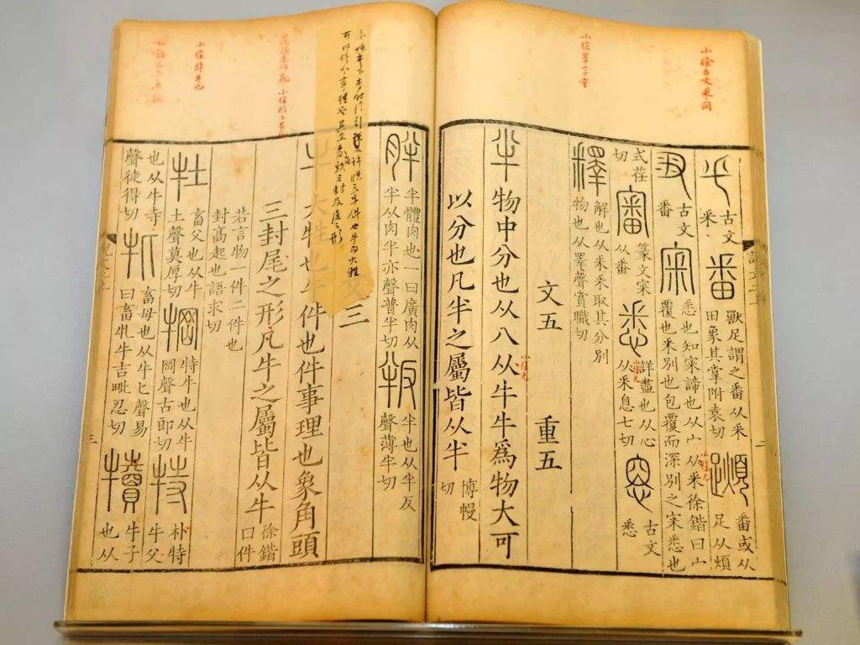 古文釆 番 獸足謂之番从釆田象其掌附袁切 番或从足从煩
古文番 宷 悉也知宷諦也从宀从釆徐鍇曰宀覆也釆別也包覆而深別之宷悉也
式荏切 審 篆文宷从番 悉 詳盡也从心从釆息七切 古文悉
釋 解也从釆釆取其分別物也从睪聲賞職切
文五 重五
半 物中分也从八从牛牛爲物大可
以分也凡半之屬皆从半 博幔切
胖 半體肉也一曰廣肉从半从肉半亦聲普半切 叛 半也从半反聲薄半切
文三
牛 大牲也牛件也件事理也象角頭
三封尾之形凡牛之屬皆从牛 徐鍇曰件
若言物一件二件也封高起也語求切
牡 畜父也从牛土聲莫厚切 犅 特牛也从牛岡聲古郎切 特 朴特牛父
也从牛寺聲徒得切 牝 畜母也从牛匕聲易曰畜牝牛吉毗忍切 犢 牛子也从